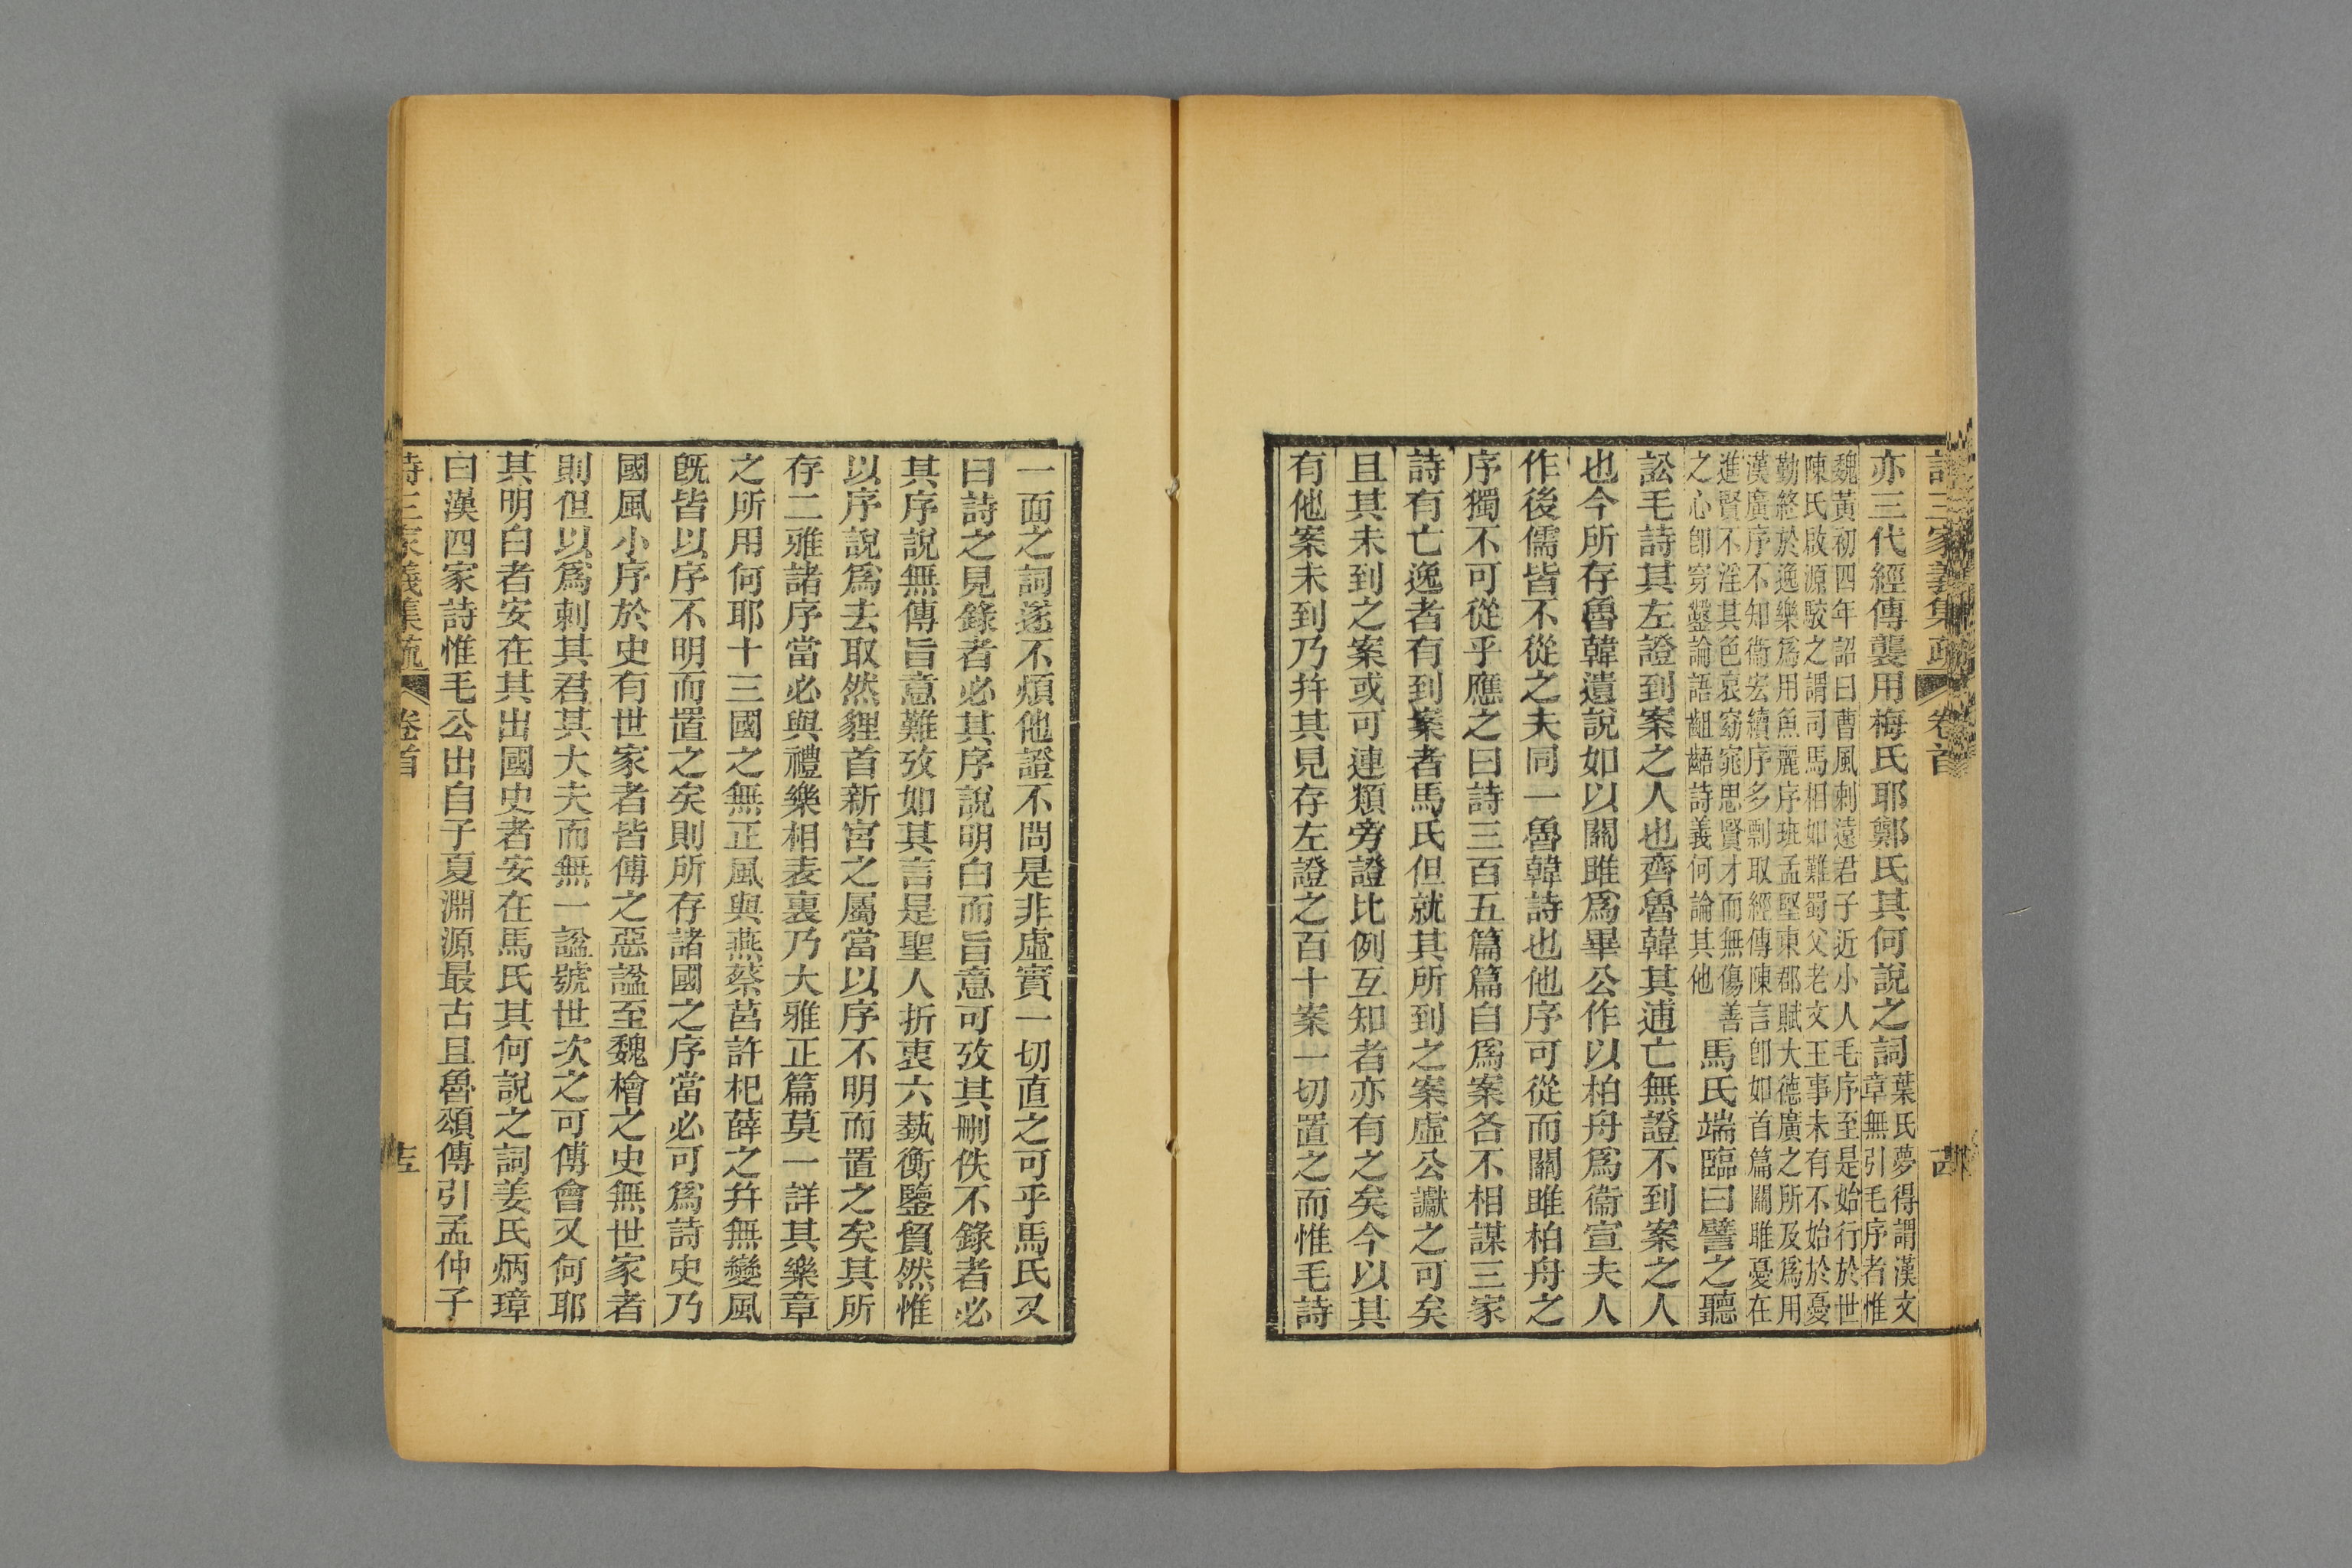 詩三家義集疏 卷首
亦三代經傳襲用梅氏耶鄭氏其何說之詞葉氏夢得謂漢文
章無引毛序者惟
魏黃初四年詔曰曹風刺遠君子近小人毛序至是始行於世
陳氏啟源駮之謂司馬相如難蜀父老文王事未有不始於憂
勤終於逸樂為用魚麗序班孟堅東都賦大德廣之所及為用
漢廣序不知衞宏續序多剽取經傳陳言卽如首篇關雎憂在
進賢不淫其色哀窈窕思賢才而無傷善
之心卽穷鑿論語齟齬詩義何論其他
馬氏端臨曰譬之聽
訟毛詩其左證到案之人也齊魯韓其逋亡無證不到案之人
也今所存魯韓遺說如以關雎爲畢公作以柏舟爲衞宣夫人
作後儒皆不從之夫同一魯韓詩也他序可從而關雎柏舟之
序獨不可從乎應之曰詩三百五篇篇自爲案各不相謀三家
詩有亡逸者有到案者馬氏但就其所到之案虛公讞之可矣
且其未到之案或可連類旁證比例互知者亦有之矣今以其
有他案未到乃幷其見存左證之百十案一切置之而惟毛詩
一面之詞遂不煩他證不問是非虛實一切直之可乎馬氏又
曰詩之見錄者必其序說明白而旨意可攷其刪佚不錄者必
其序說無傳旨意難攷如其言是聖人折衷六蓺衡鑒貿然惟
以序說爲去取然貍首新宮之屬當以序不明而置之矣其所
存二雅諸序當必與禮樂相表裏乃大雅正篇莫一詳其樂章
之所用何耶十三國之無正風與燕蔡莒許杞薛之幷無變風
旣皆以序不明而置之矣則所存諸國之序當必可爲詩史乃
國風小序於史有世家者皆傅之惡謚至魏檜之史無世家者
則但以爲刺其君其大夫而無一謚號世次之可傅會又何耶
其明白者安在其出國史者安在馬氏其何說之詞姜氏炳璋
曰漢四家詩惟毛公出自子夏淵源最古且魯頌傳引孟仲子
詩三家義集疏 卷首